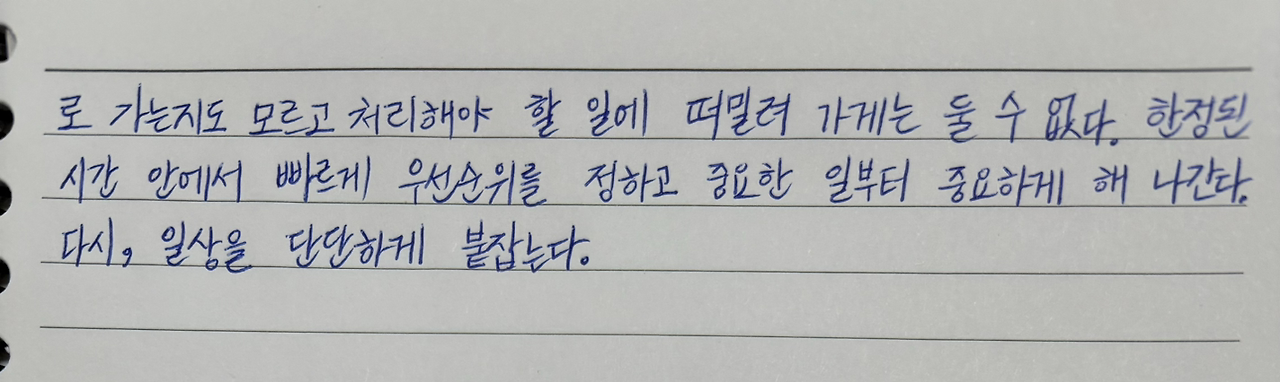 로 가는지도 모르고 처리해야 할 일에 떠밀려 가게는 둘 수 없다. 한정된
시간 안에서 빠르게 우선순위를 정하고 중요한 일부터 중요하게 해 나간다.
다시, 일상을 단단하게 붙잡는다.